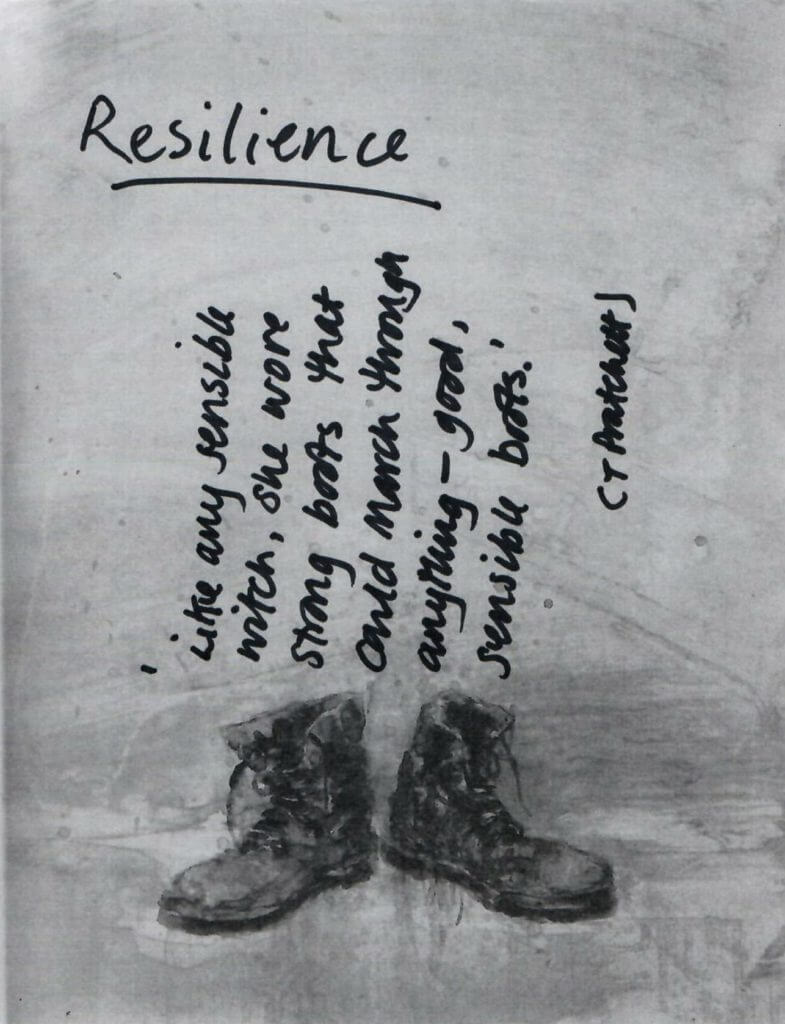 Resilience
'Like any sensible
witch, she wore
strong boots that
could march through
anything – good,
sensible boots.'
(T Pratchett)